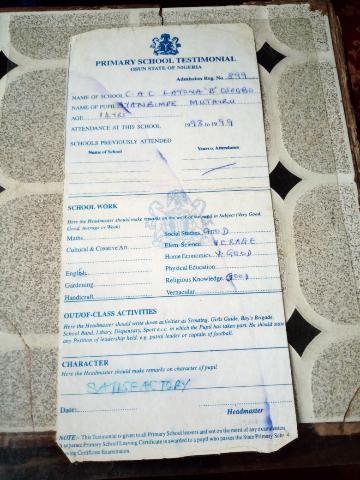 PRIMARY SCHOOL TESTIMONIAL
OSUN STATE OF NIGERIA
Admission Reg. No 899
NAME OF SCHOOL C.A.C LATONA 'B' OSOGBO
NAME OF PUPIL AYANBIMPE MUTAIRU
AGE 14 YRS
ATTENDANCE AT THIS SCHOOL 1993 to 1999
SCHOOLS PREVIOUSLY ATTENDED
Name of School Years. Attendance
SCHOOL WORK
Here the Headmaster should make remarks on the work of the pupil in Subject (Very Good, Good, Average or Weak)
Maths. Social Studies GOOD
Cultural & Creative Art Elem. Science VERAGE
Home Economics V. GOOD
English Physical Education
Gardening Religious Knowledge GOOD
Handicraft Vernacular
OUT/OF-CLASS ACTIVITIES
Here the Headmaster should write down activities as Scouting, Girls Guide, Boy's Brigade
School Band, Library, Dispensary, Sport e.t.c. in which the Pupil has taken Part. He should state
any Position of leadership held, e.g. patrol leader or captain of football.
CHARACTER
Here the Headmaster should make remarks on character of pupil
SATISFACTORY
Date: Headmaster
NOTE:- This Testimonial is given to all Primary School leavers and not on the merit of any examination.
A separate Primary School Leaving Certificate is awarded to a pupil who passes the State Primary School
Leaving Certificate Examination.